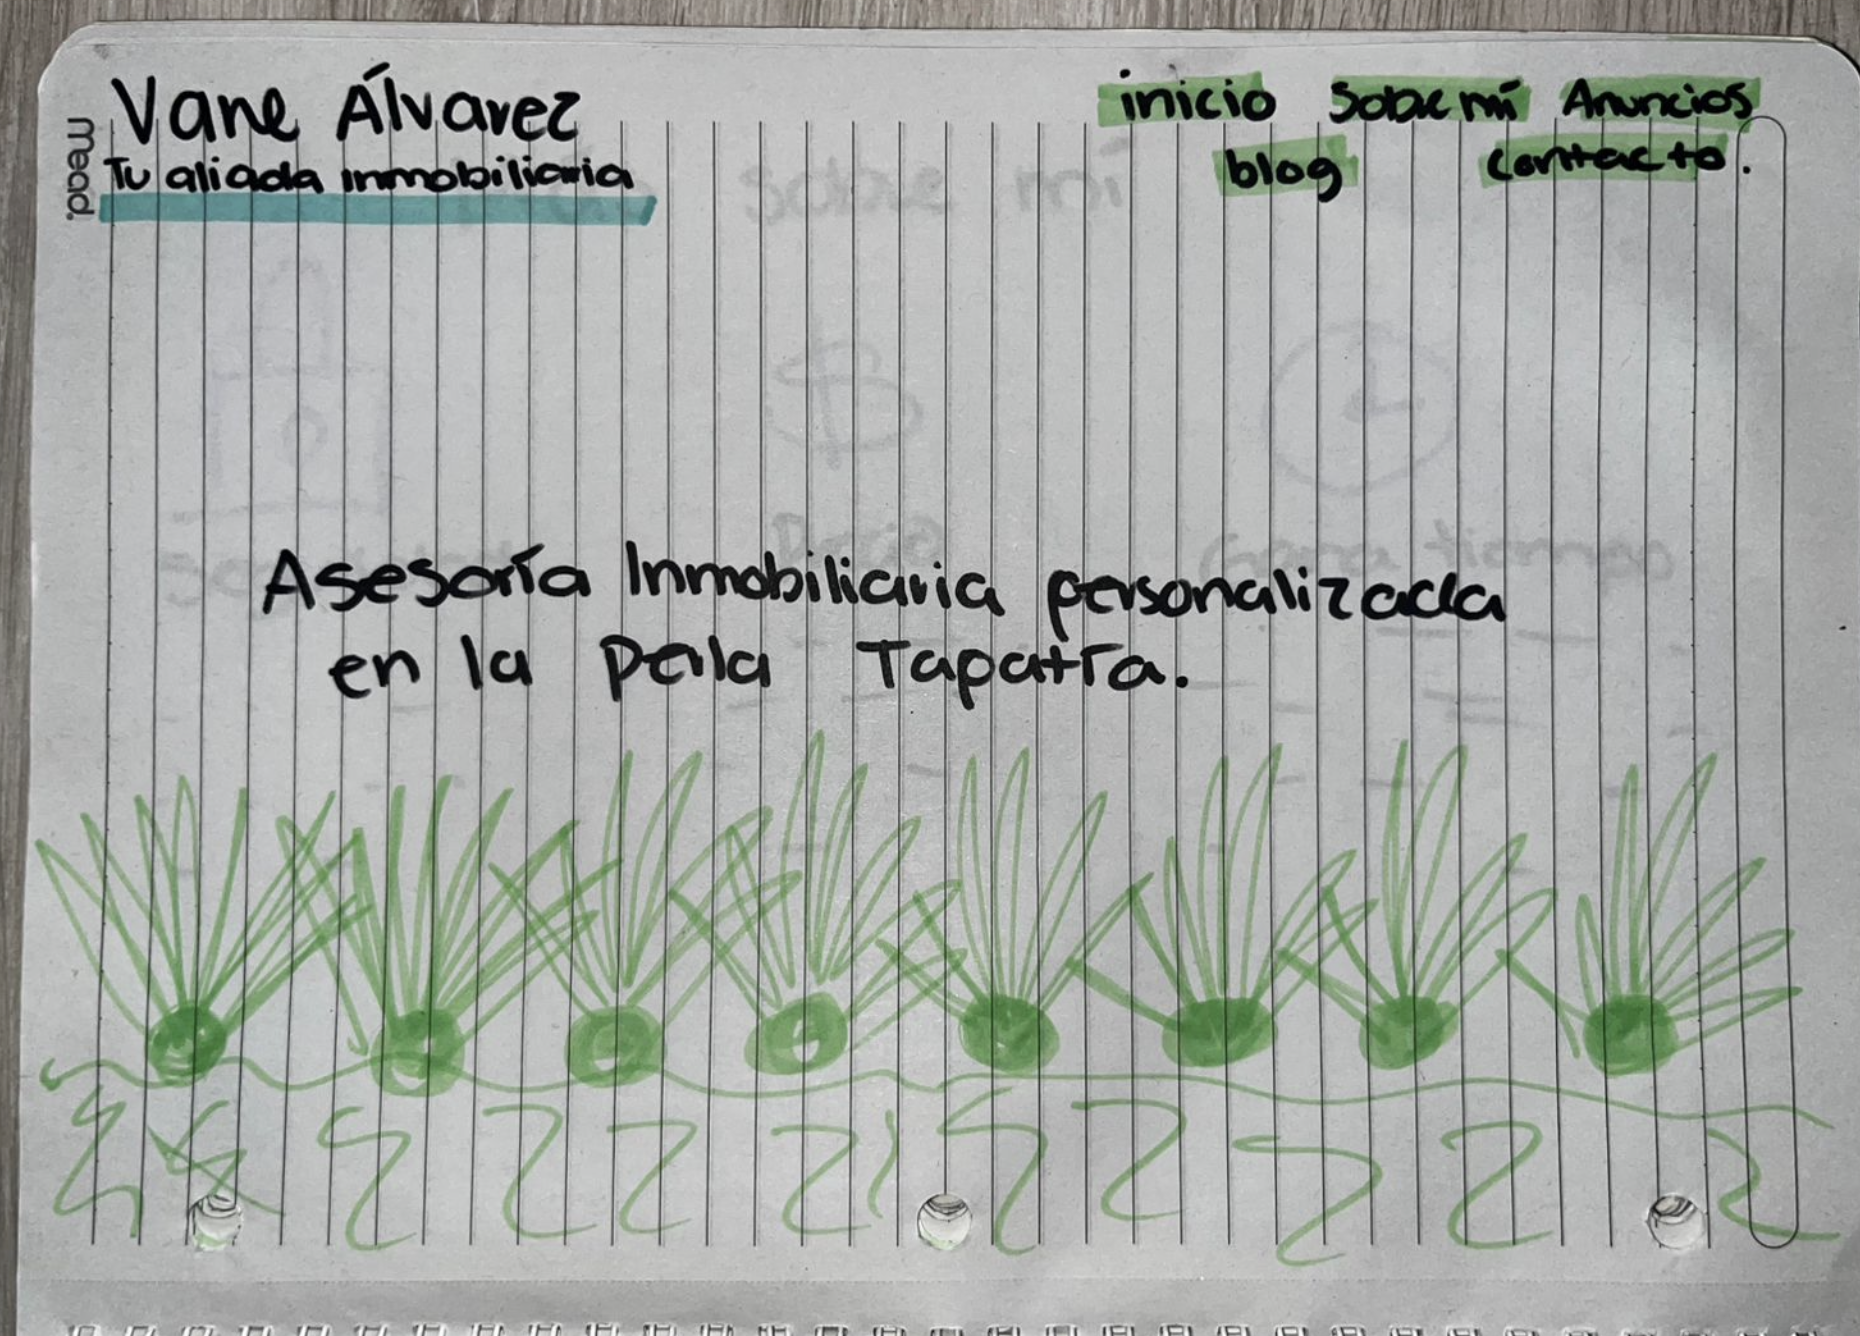 Vane Álvarez
Tu aliada inmobiliaria
inicio Sobre mí Anuncios
blog contacto.
mead.
sobre mí
Gana tiempo
Asesoría Inmobiliaria personalizada
en la Perla Tapatía.